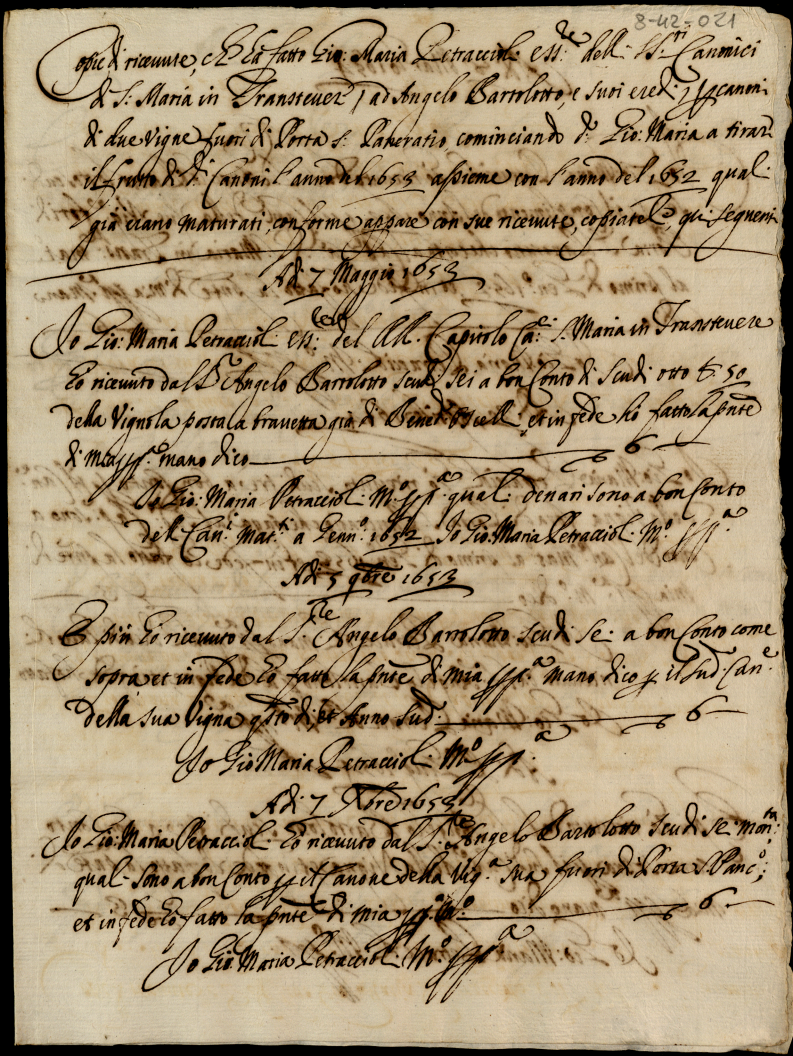 8-42-021
Copie di riceuute, ch'hà fatto Gio: Maria Petracciol: ess:re dell: SS:ri Canonici
di S: Maria in Transteuer, ad Angelo Bartolotto, e suoi eredi, canoni
di due Vigne fuori di Porta S: Pancratio, cominciando d:o Gio: Maria a tirar
il frutto di d:i Canoni l'anno del 1653 assieme con l'anno del 1652 qual:
già erano maturati, conforme appare con sue riceuute, copiatele, qui seguenti
Adi 7 Maggio 1653
Io Gio: Maria Petracciol: ess:re del Capitolo S. Maria in Transteuere
hò riceuuto dal S:r Angelo Bartolotto scudi sei a bon Conto di scudi otto b: 50
della Vignola posta a brauetta già di et in fede hò fatto la pnte
di mia ppa mano dico 6
Io Gio: Maria Petracciol: M:o pp:a qual: denari sono a bon Conto
del Can: mat: a Genn:o 1652 Io Gio: Maria Petracciol: M:o pp:a
Adi 5 9bre 1653
E più hò riceuuto dal S:re Angelo Bartolotto scudi sei a bon Conto come
sopra, et in fede hò fatto la pnte di mia pp:a mano dico p il sud: Can:e
della sua Vigna q:sto di et Anno sud: 6
Io Gio Maria Petracciol: M:o pp:a
Adi 7 Xbre 1653
Io Gio: Maria Petracciol: hò riceuuto dal S:re Angelo Bartolotto scudi sei mon:ta
qual: sono a bon Conto p il Canone della Vig:a sua fuori di Porta S. Panc:o;
et in fede hò fatto la pnte di mia pp:a M:o 6
Io Gio: Maria Petracciol: M:o pp:a